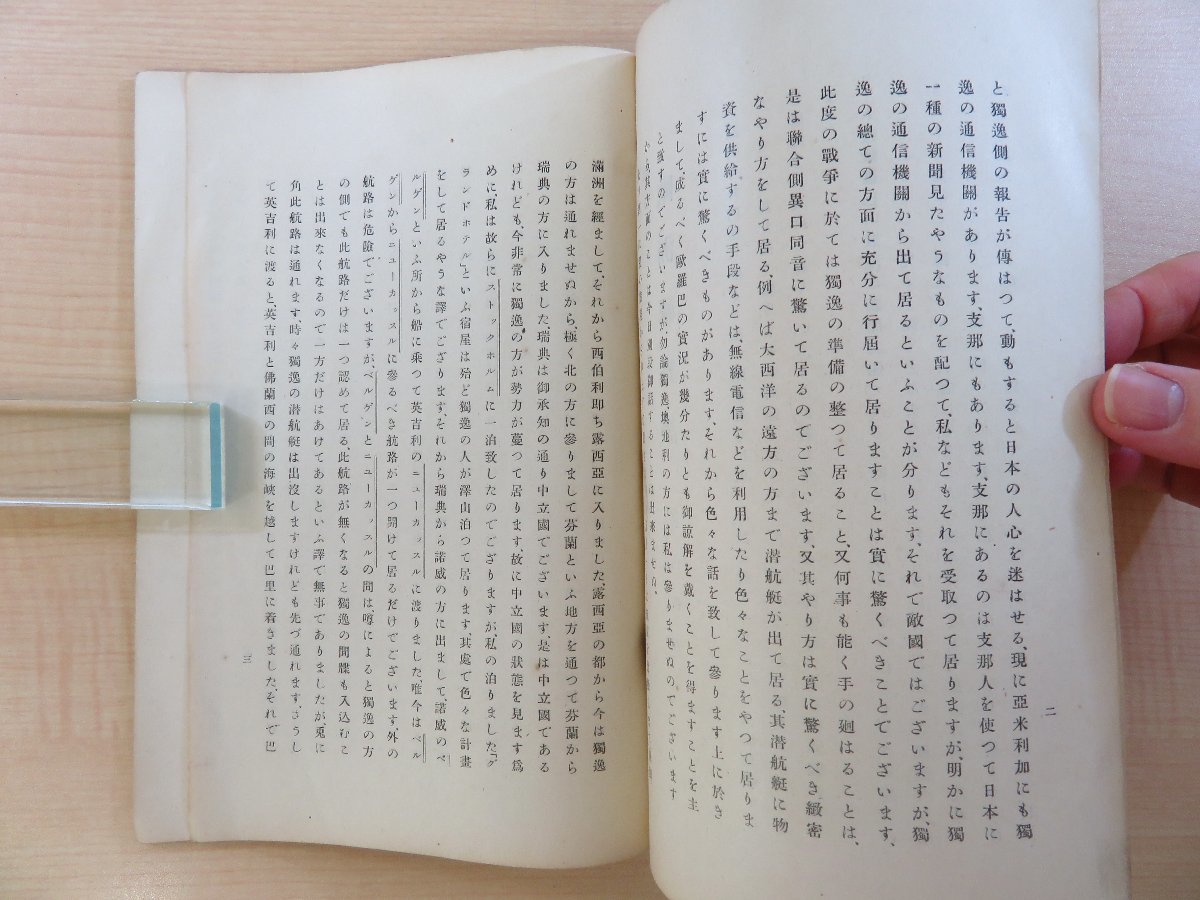 二
と獨逸側の報告が傳はつて、動もすると日本の人心を迷はせる、現に亞米利加にも獨
逸の通信機關があります、支那にもあります、支那にあるのは支那人を使つて日本に
一種の新聞見たやうなものを配つて、私などもそれを受取つて居りますが、明かに獨
逸の通信機關から出て居るといふことが分ります、それで敵國ではございますが、獨
逸の總ての方面に充分に行屆いて居りますことは實に驚くべきことでございます、
此度の戰爭に於ては獨逸の準備の整つて居ること、又何事も能く手の廻はることは、
是は聯合側異口同音に驚いて居るのでございます、又其やり方は實に驚くべき緻密
なやり方をして居る、例へば大西洋の遠方の方まで潜航艇が出て居る、其潜航艇に物
資を供給するの手段などは、無線電信などを利用したり色々なことをやつて居りま
すには實に驚くべきものがあります、それから色々な話を致して參ります上に於き
まして、成るべく歐羅巴の實況が幾分たりとも御諒解を戴くことを得ますことを主
と致すのでございますが、勿論獨逸墺地利の方には私は參りませぬのでございます
其方面のことは今日御話することは出來ませぬ、
滿洲を經まして、それから西伯利即ち露西亞に入りました、露西亞の都から今は獨逸
の方は通れませぬから、極く北の方に參りまして芬蘭といふ地方を通つて芬蘭から
瑞典の方に入りました、瑞典は御承知の通り中立國でございます、是は中立國である
けれども、今非常に獨逸の方が勢力が蔓つて居ります、故に中立國の狀態を見ます爲
めに、私は故らにストックホルムに一泊致したのでござりますが、私の泊りました「グ
ランドホテル」といふ宿屋は殆ど獨逸の人が澤山泊つて居ります、其處で色々な計畫
をして居るやうな譯でござります、それから瑞典から諾威の方に出まして、諾威のベ
ルゲンといふ所から船に乘つて英吉利のニューカッスルに渡りました、唯今はベル
ゲンからニューカッスルに參るべき航路が一つ開けて居るだけでございます、外の
航路は危險でございますが、ベルゲンとニューカッスルの間は、噂によると獨逸の方
の側でも此航路だけは一つ認めて居る、此航路が無くなると獨逸の間牒も入込むこ
とは出來なくなるので一方だけはあけてあるといふ譯で無事でありましたが、兎に
角此航路は通れます、時々獨逸の潜航艇は出沒しますけれども先づ通れます、さうし
て英吉利に渡ると、英吉利と佛蘭西の間の海峽を越して巴里に着きました、それで巴
三